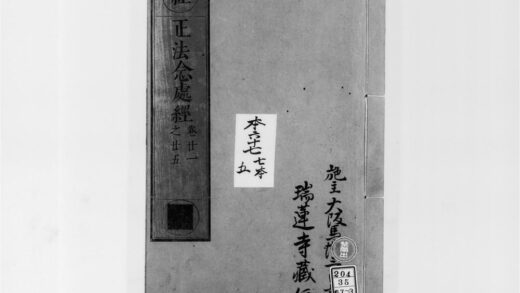 經
正法念處經
卷廿一
之廿五
本六十七 七本
五
施主 大阪
瑞蓮寺藏
禁帶出
204
35